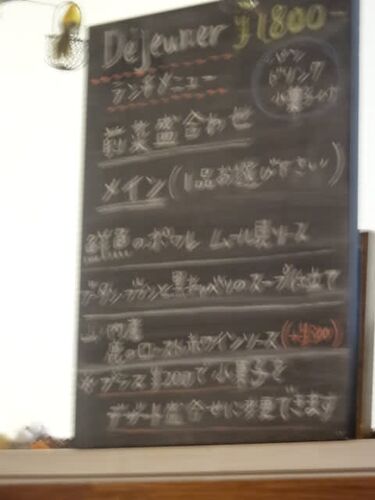 Déjeuner ¥1800-
ランチメニュー
パン
ドリンク
小菓子付
前菜盛合わせ
メイン(1品お選び下さい)
鮮魚のポワレ ムール貝ソース
ブータンブランと黒キャベツのスープ仕立て
鹿のロースト赤ワインソース(+¥300)
※プラス¥200で小菓子を
デザート盛合せに変更できます